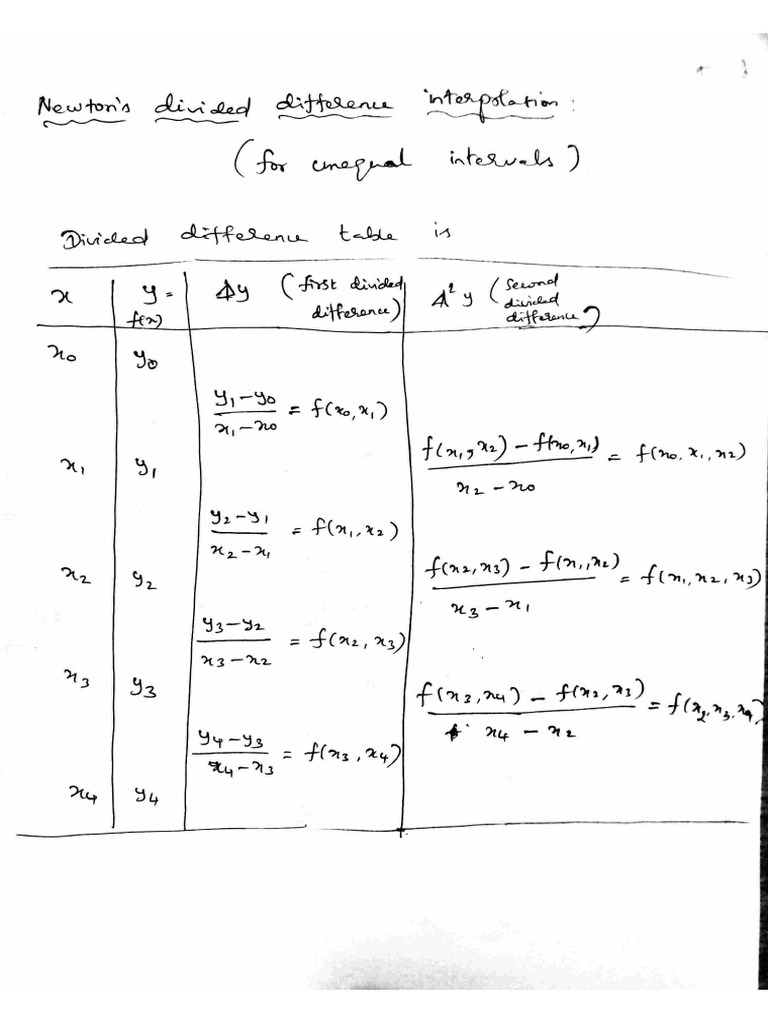 Newton's divided difference interpolation:
(for unequal intervals)
Divided difference table is
x | y = f(x) | Δy (first divided difference) | Δ² y (second divided difference)
x0 y0
(y1 – y0)/(x1 – x0) = f(x0, x1)
x1 y1 (f(x1, x2) – f(x0, x1))/(x2 – x0) = f(x0, x1, x2)
(y2 – y1)/(x2 – x1) = f(x1, x2)
x2 y2 (f(x2, x3) – f(x1, x2))/(x3 – x1) = f(x1, x2, x3)
(y3 – y2)/(x3 – x2) = f(x2, x3)
x3 y3 (f(x3, x4) – f(x2, x3))/(x4 – x2) = f(x2, x3, x4)
(y4 – y3)/(x4 – x3) = f(x3, x4)
x4 y4